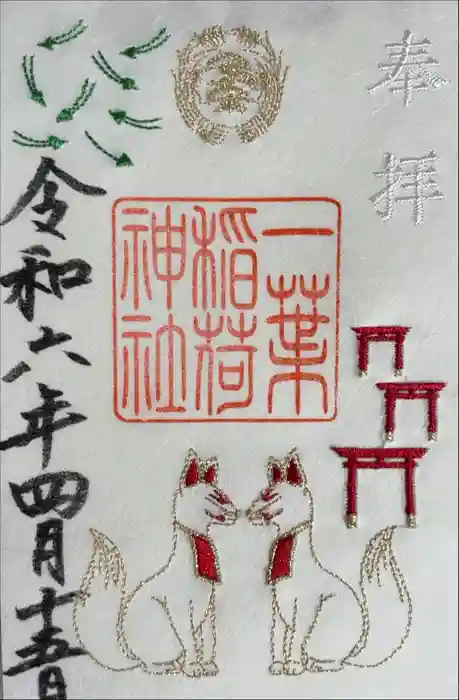 奉拝
一葉
稲荷
神社
令和六年四月十五日